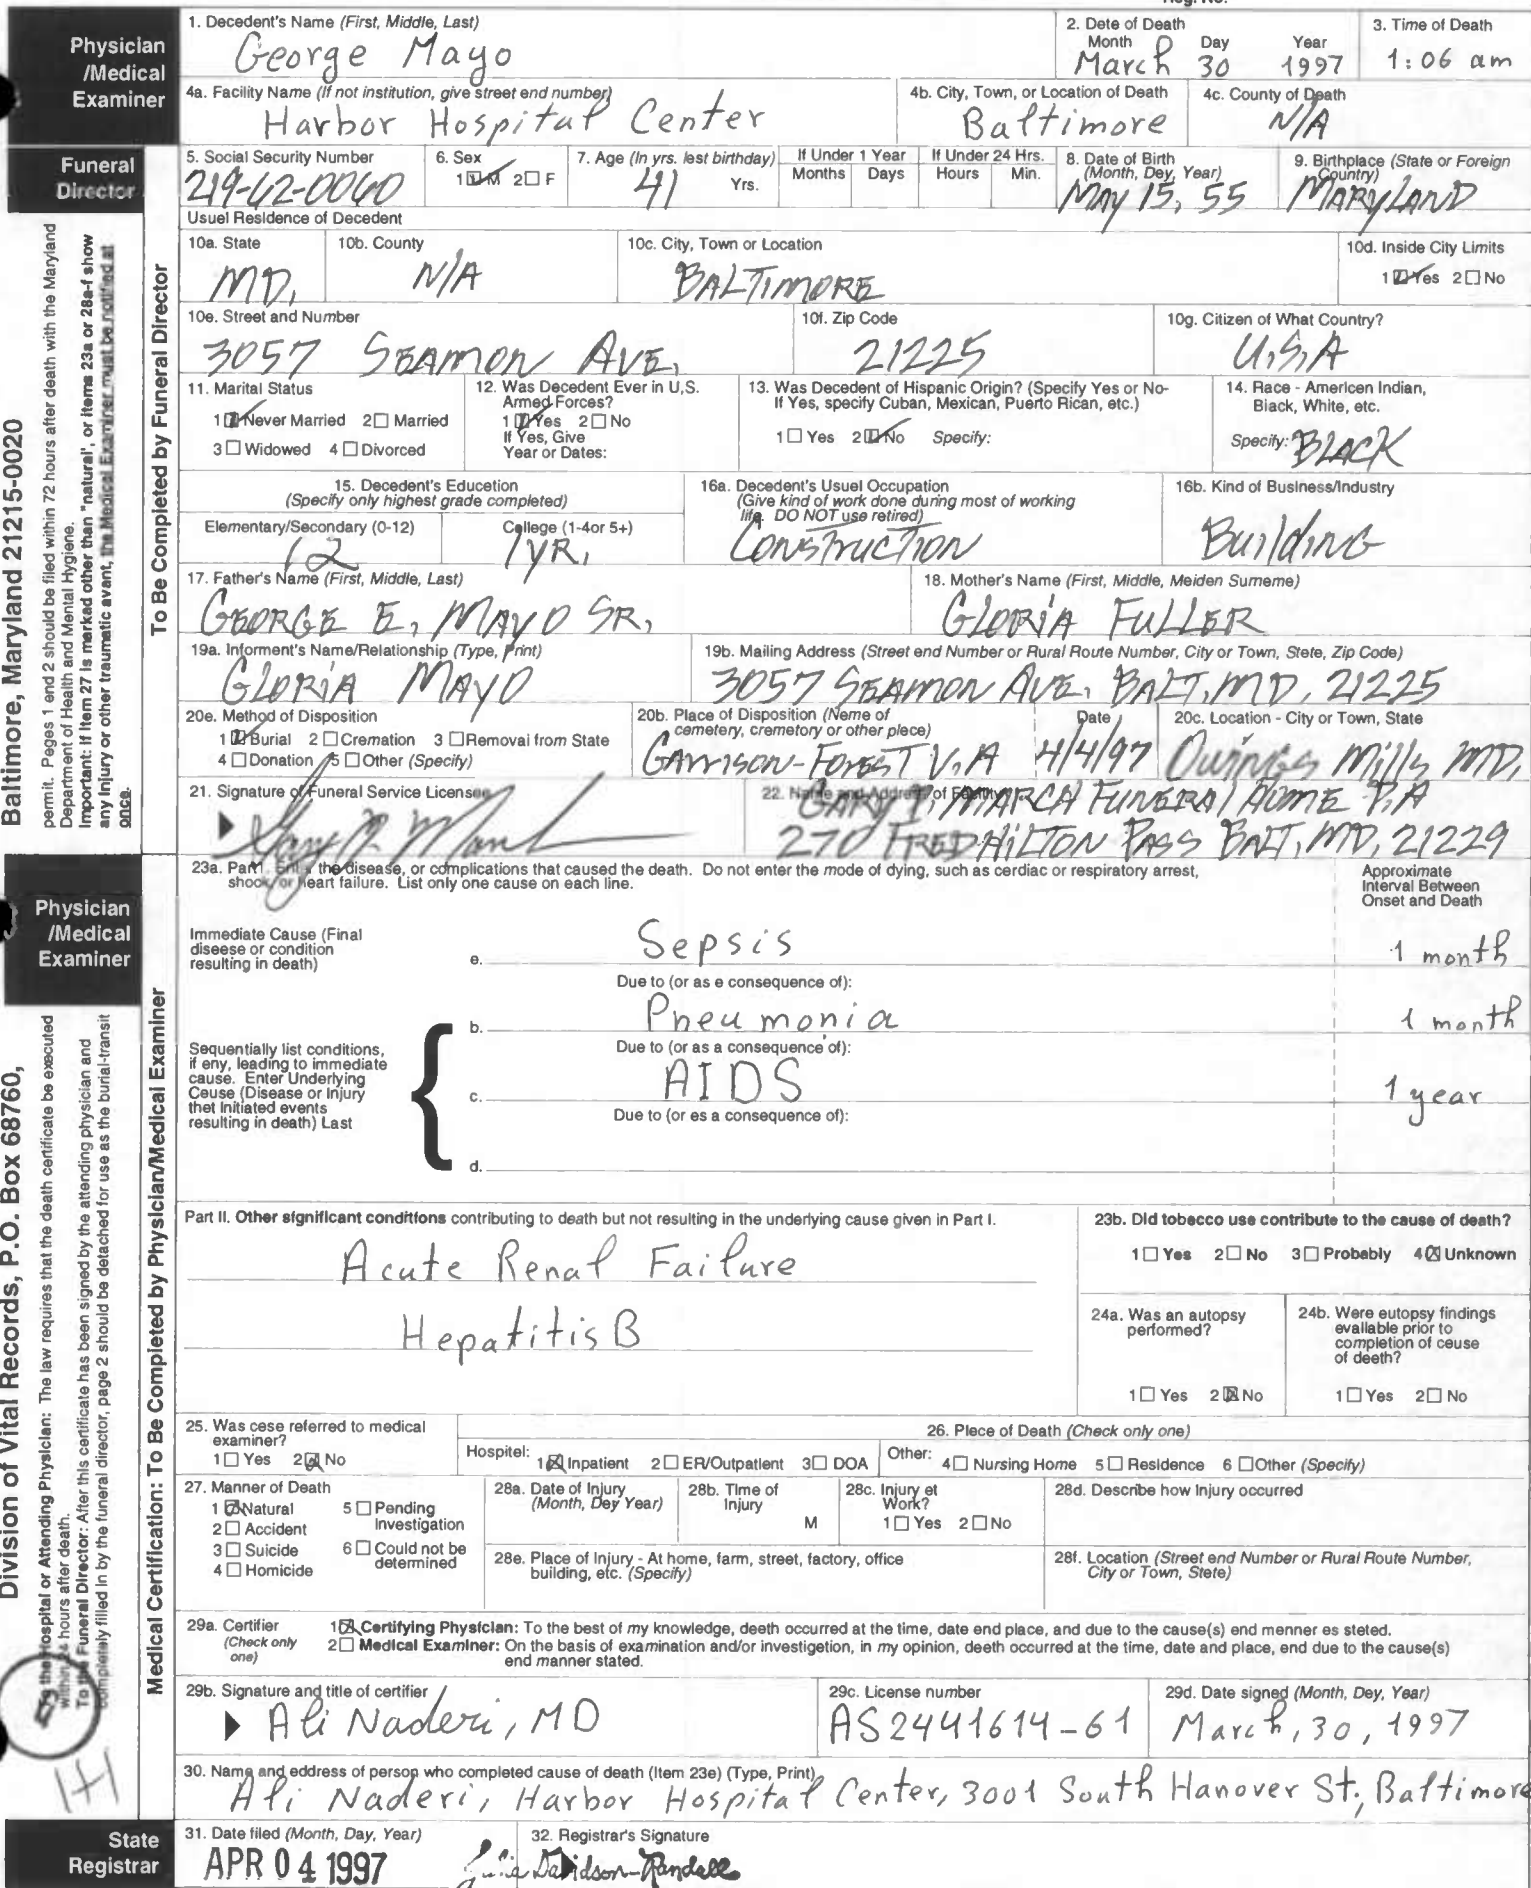 Reg. No.
Physician /Medical Examiner
1. Decedent's Name (First, Middle, Last)
George Mayo
2. Dete of Death
Month Day Year
March 30 1997
3. Time of Death
1:06 am
4a. Facility Name (If not institution, give street end number)
Harbor Hospital Center
4b. City, Town, or Location of Death
Baltimore
4c. County of Death
N/A
Funeral Director
5. Social Security Number
219-62-0060
6. Sex
1☑M 2☐F
7. Age (In yrs. lest birthday)
41 Yrs.
If Under 1 Year
Months Days
If Under 24 Hrs.
Hours Min.
8. Date of Birth (Month, Dey, Year)
MAY 15, 55
9. Birthplace (State or Foreign Country)
MARYLAND
Usuel Residence of Decedent
10a. State
MD.
10b. County
N/A
10c. City, Town or Location
BALTIMORE
10d. Inside City Limits
1☑Yes 2☐No
10e. Street and Number
3057 SEAMON AVE.
10f. Zip Code
21225
10g. Citizen of What Country?
U.S.A
11. Marital Status
1☑Never Married 2☐Married
3☐Widowed 4☐Divorced
12. Was Decedent Ever in U.S. Armed Forces?
1☑Yes 2☐No
If Yes, Give
Year or Dates:
13. Was Decedent of Hispanic Origin? (Specify Yes or No-
If Yes, specify Cuban, Mexican, Puerto Rican, etc.)
1☐Yes 2☑No Specify:
14. Race - Americen Indian,
Black, White, etc.
Specify: BLACK
15. Decedent's Education
(Specify only highest grade completed)
Elementary/Secondary (0-12)
12
College (1-4or 5+)
1YR.
16a. Decedent's Usuel Occupation
(Give kind of work done during most of working
life. DO NOT use retired)
CONSTRUCTION
16b. Kind of Business/Industry
Building
17. Father's Name (First, Middle, Last)
GEORGE E. MAYO SR.
18. Mother's Name (First, Middle, Meiden Surneme)
GLORIA FULLER
19a. Informent's Name/Relationship (Type, Print)
GLORIA MAYO
19b. Mailing Address (Street end Number or Rural Route Number, City or Town, Stete, Zip Code)
3057 SEAMON AVE. BALT, MD. 21225
20e. Method of Disposition
1☑Burial 2☐Cremation 3☐Removal from State
4☐Donation 5☐Other (Specify)
20b. Place of Disposition (Neme of
cemetery, cremetory or other plece)
GARRISON-FOREST V.A
Date
4/4/97
20c. Location - City or Town, State
Owings Mills MD.
21. Signature of Funeral Service Licensee
22. Name and Address of Facility
GARY P. MARCH FUNERAL HOME P.A
270 FRED HILTON PASS BALT, MD, 21229
To Be Completed by Funeral Director
Baltimore, Maryland 21215-0020
permit. Peges 1 end 2 should be filed within 72 hours after death with the Maryland
Department of Health and Mental Hygiene.
Important: If Item 27 is marked other than "natural", or items 23a or 28a-f show
any Injury or other traumatic avant, the Medical Examiner must be notified at
once.
Physician /Medical Examiner
23a. Part1. Enter the disease, or complications that caused the death. Do not enter the mode of dying, such as cerdiac or respiratory arrest,
shock, or heart failure. List only one cause on each line.
Approximate
Interval Between
Onset and Death
Immediate Cause (Final
disease or condition
resulting in death)
e. Sepsis 1 month
Due to (or as e consequence of):
b. Pneumonia 1 month
Due to (or as a consequence of):
Sequentially list conditions,
if eny, leading to immediate
cause. Enter Underlying
Ceuse (Disease or Injury
thet Initiated events
resulting in death) Last
c. AIDS 1 year
Due to (or es a consequence of):
d.
Part II. Other significant conditions contributing to death but not resulting in the underlying cause given in Part I.
Acute Renal Failure
Hepatitis B
23b. Did tobacco use contribute to the cause of death?
1☐Yes 2☐No 3☐Probably 4☒Unknown
24a. Was an autopsy
performed?
1☐Yes 2☒No
24b. Were eutopsy findings
eveilable prior to
completion of ceuse
of deeth?
1☐Yes 2☐No
25. Was cese referred to medical
examiner?
1☐Yes 2☒No
26. Plece of Death (Check only one)
Hospitel: 1☒Inpatient 2☐ER/Outpatient 3☐DOA Other: 4☐Nursing Home 5☐Residence 6☐Other (Specify)
27. Manner of Death
1☒Natural 5☐Pending Investigation
2☐Accident
3☐Suicide 6☐Could not be determined
4☐Homicide
28a. Date of Injury
(Month, Dey Year)
28b. Time of
Injury
M
28c. Injury et
Work?
1☐Yes 2☐No
28d. Describe how Injury occurred
28e. Place of Injury - At home, farm, street, factory, office
building, etc. (Specify)
28f. Location (Street end Number or Rural Route Number,
City or Town, Stete)
29a. Certifier
(Check only
one)
1☒Certifying Physician: To the best of my knowledge, deeth occurred at the time, date end place, and due to the cause(s) end menner es steted.
2☐Medical Examiner: On the basis of examination and/or investigetion, in my opinion, deeth occurred at the time, date and place, end due to the cause(s)
end manner stated.
29b. Signature and title of certifier
Ali Naderi, MD
29c. License number
AS2441614-61
29d. Date signed (Month, Dey, Year)
March, 30, 1997
30. Name and eddress of person who completed cause of death (Item 23e) (Type, Print)
Ali Naderi, Harbor Hospital Center, 3001 South Hanover St., Baltimore
Medical Certification: To Be Completed by Physician/Medical Examiner
Division of Vital Records, P.O. Box 68760,
To the Hospital or Attending Physician: The law requires that the death certificate be executed
within 24 hours after death.
To the Funeral Director: After this certificate has been signed by the attending physician and
completely filled in by the funeral director, page 2 should be detached for use as the burial-transit
State Registrar
31. Date filed (Month, Day, Year)
APR 04 1997
32. Registrar's Signature
Julia Davidson-Randall